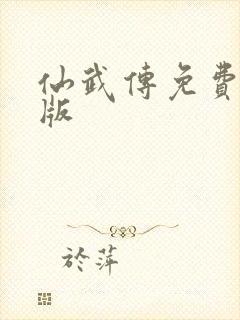 仙武傳免費
版
於萍